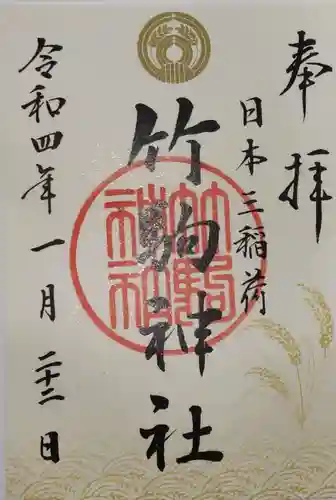 奉拝
日本三稲荷
竹駒神社
竹駒
神社
令和四年一月二十二日